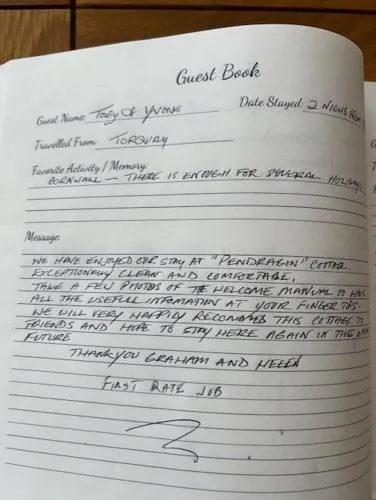 Guest Book
Guest Name: TOBY & YVONE
Date Stayed: 2 NIGHT FROM
Travelled From: TORQUAY
Favorite Activity / Memory:
CORNWALL - THERE IS ENOUGH FOR SEVERAL HOLIDAYS
Message
WE HAVE ENJOYED OUR STAY AT "PENDRAGON" COTTAGE.
EXCEPTIONALLY CLEAN AND COMFORTABLE,
TAKE A FEW PHOTOS OF THE WELCOME MANUAL TO HAVE
ALL THE USEFULL INFOMATION AT YOUR FINGER TIPS.
WE WILL VERY HAPPILY RECOMEND THIS COTTAGE TO
FRIENDS AND HOPE TO STAY HERE AGAIN IN THE
FUTURE
THANKYOU GRAHAM AND HELEN
FIRST RATE JOB